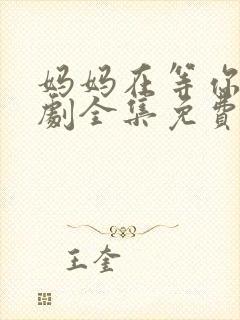 妈妈在等你
劇全集免費
王奎